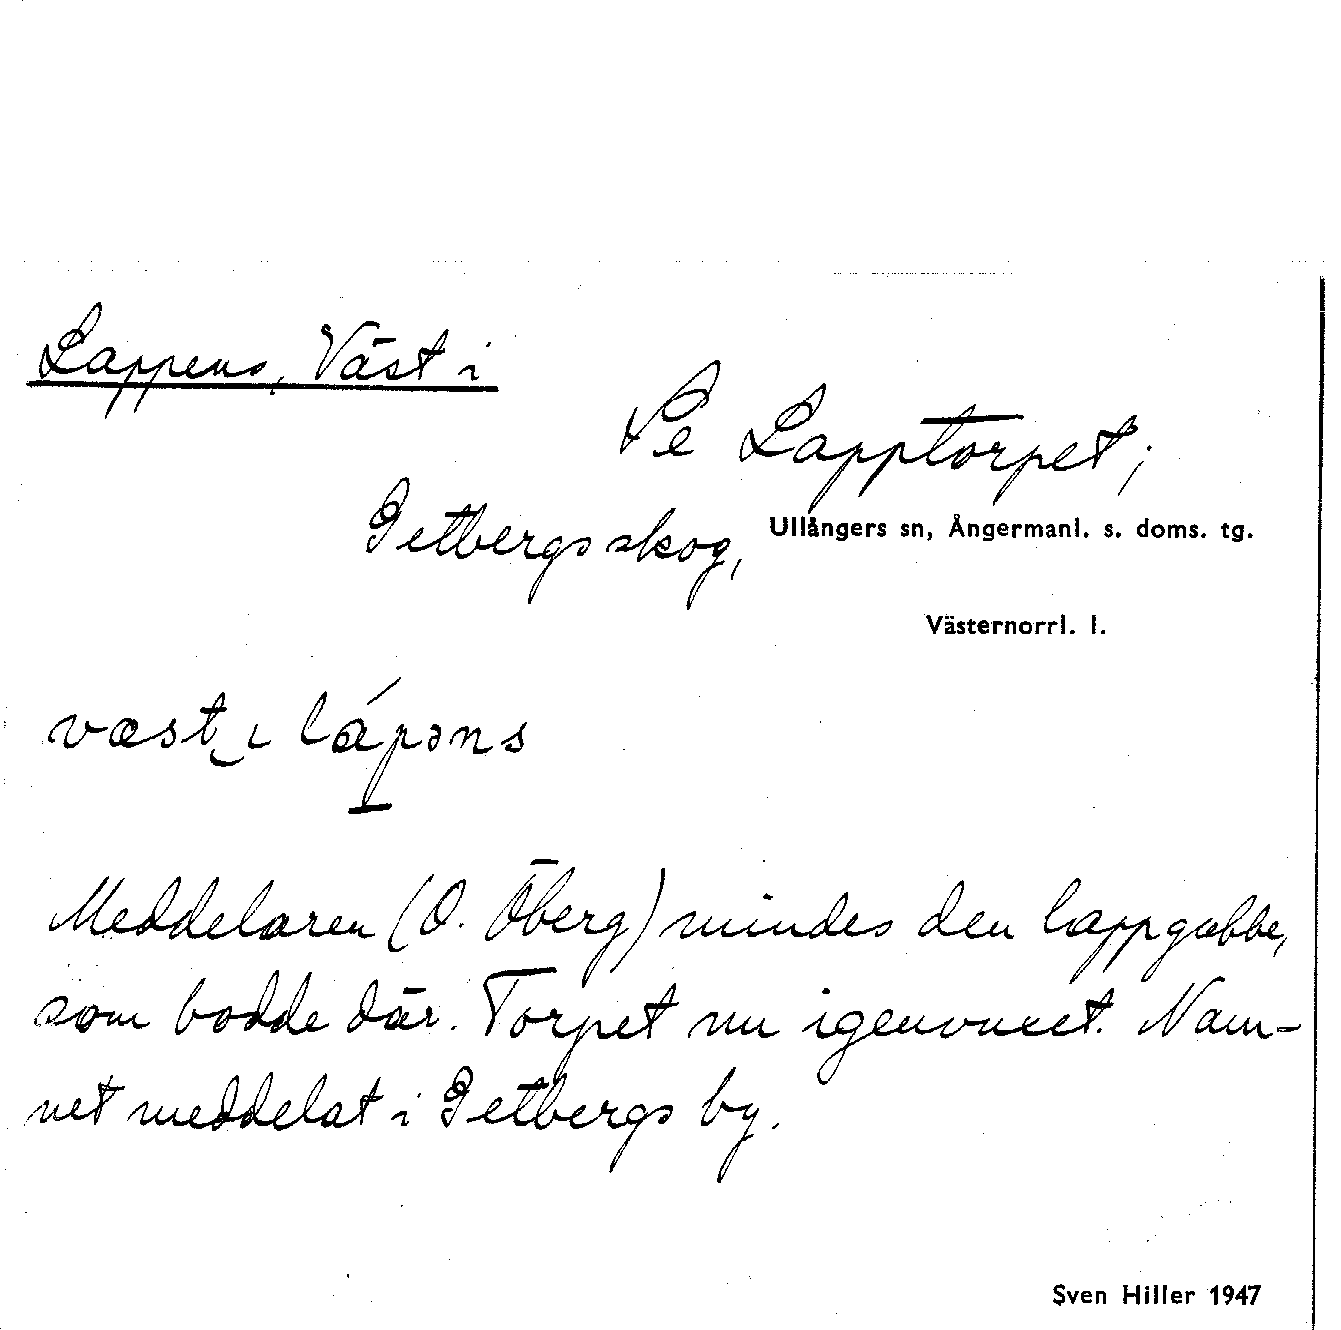 Lappens, Väst i
Se Lapptorpet;
Getbergsskog, Ullångers sn, Ångermanl. s. doms. tg.
Västernorrl. l.
væst ɩ lápəns
Meddelaren (O. Öberg) mindes den lappgubbe,
som bodde där. Torpet nu igenvuxet. Nam-
net meddelat i Getbergs by.
Sven Hiller 1947